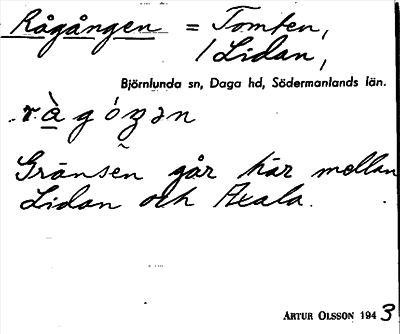 Rågången = Tomten,
/ Lidan,
Björnlunda sn, Daga hd, Södermanlands län.
rå̀góŋən
Gränsen går här mellan
Lidan och Axala.
ARTUR OLSSON 1943